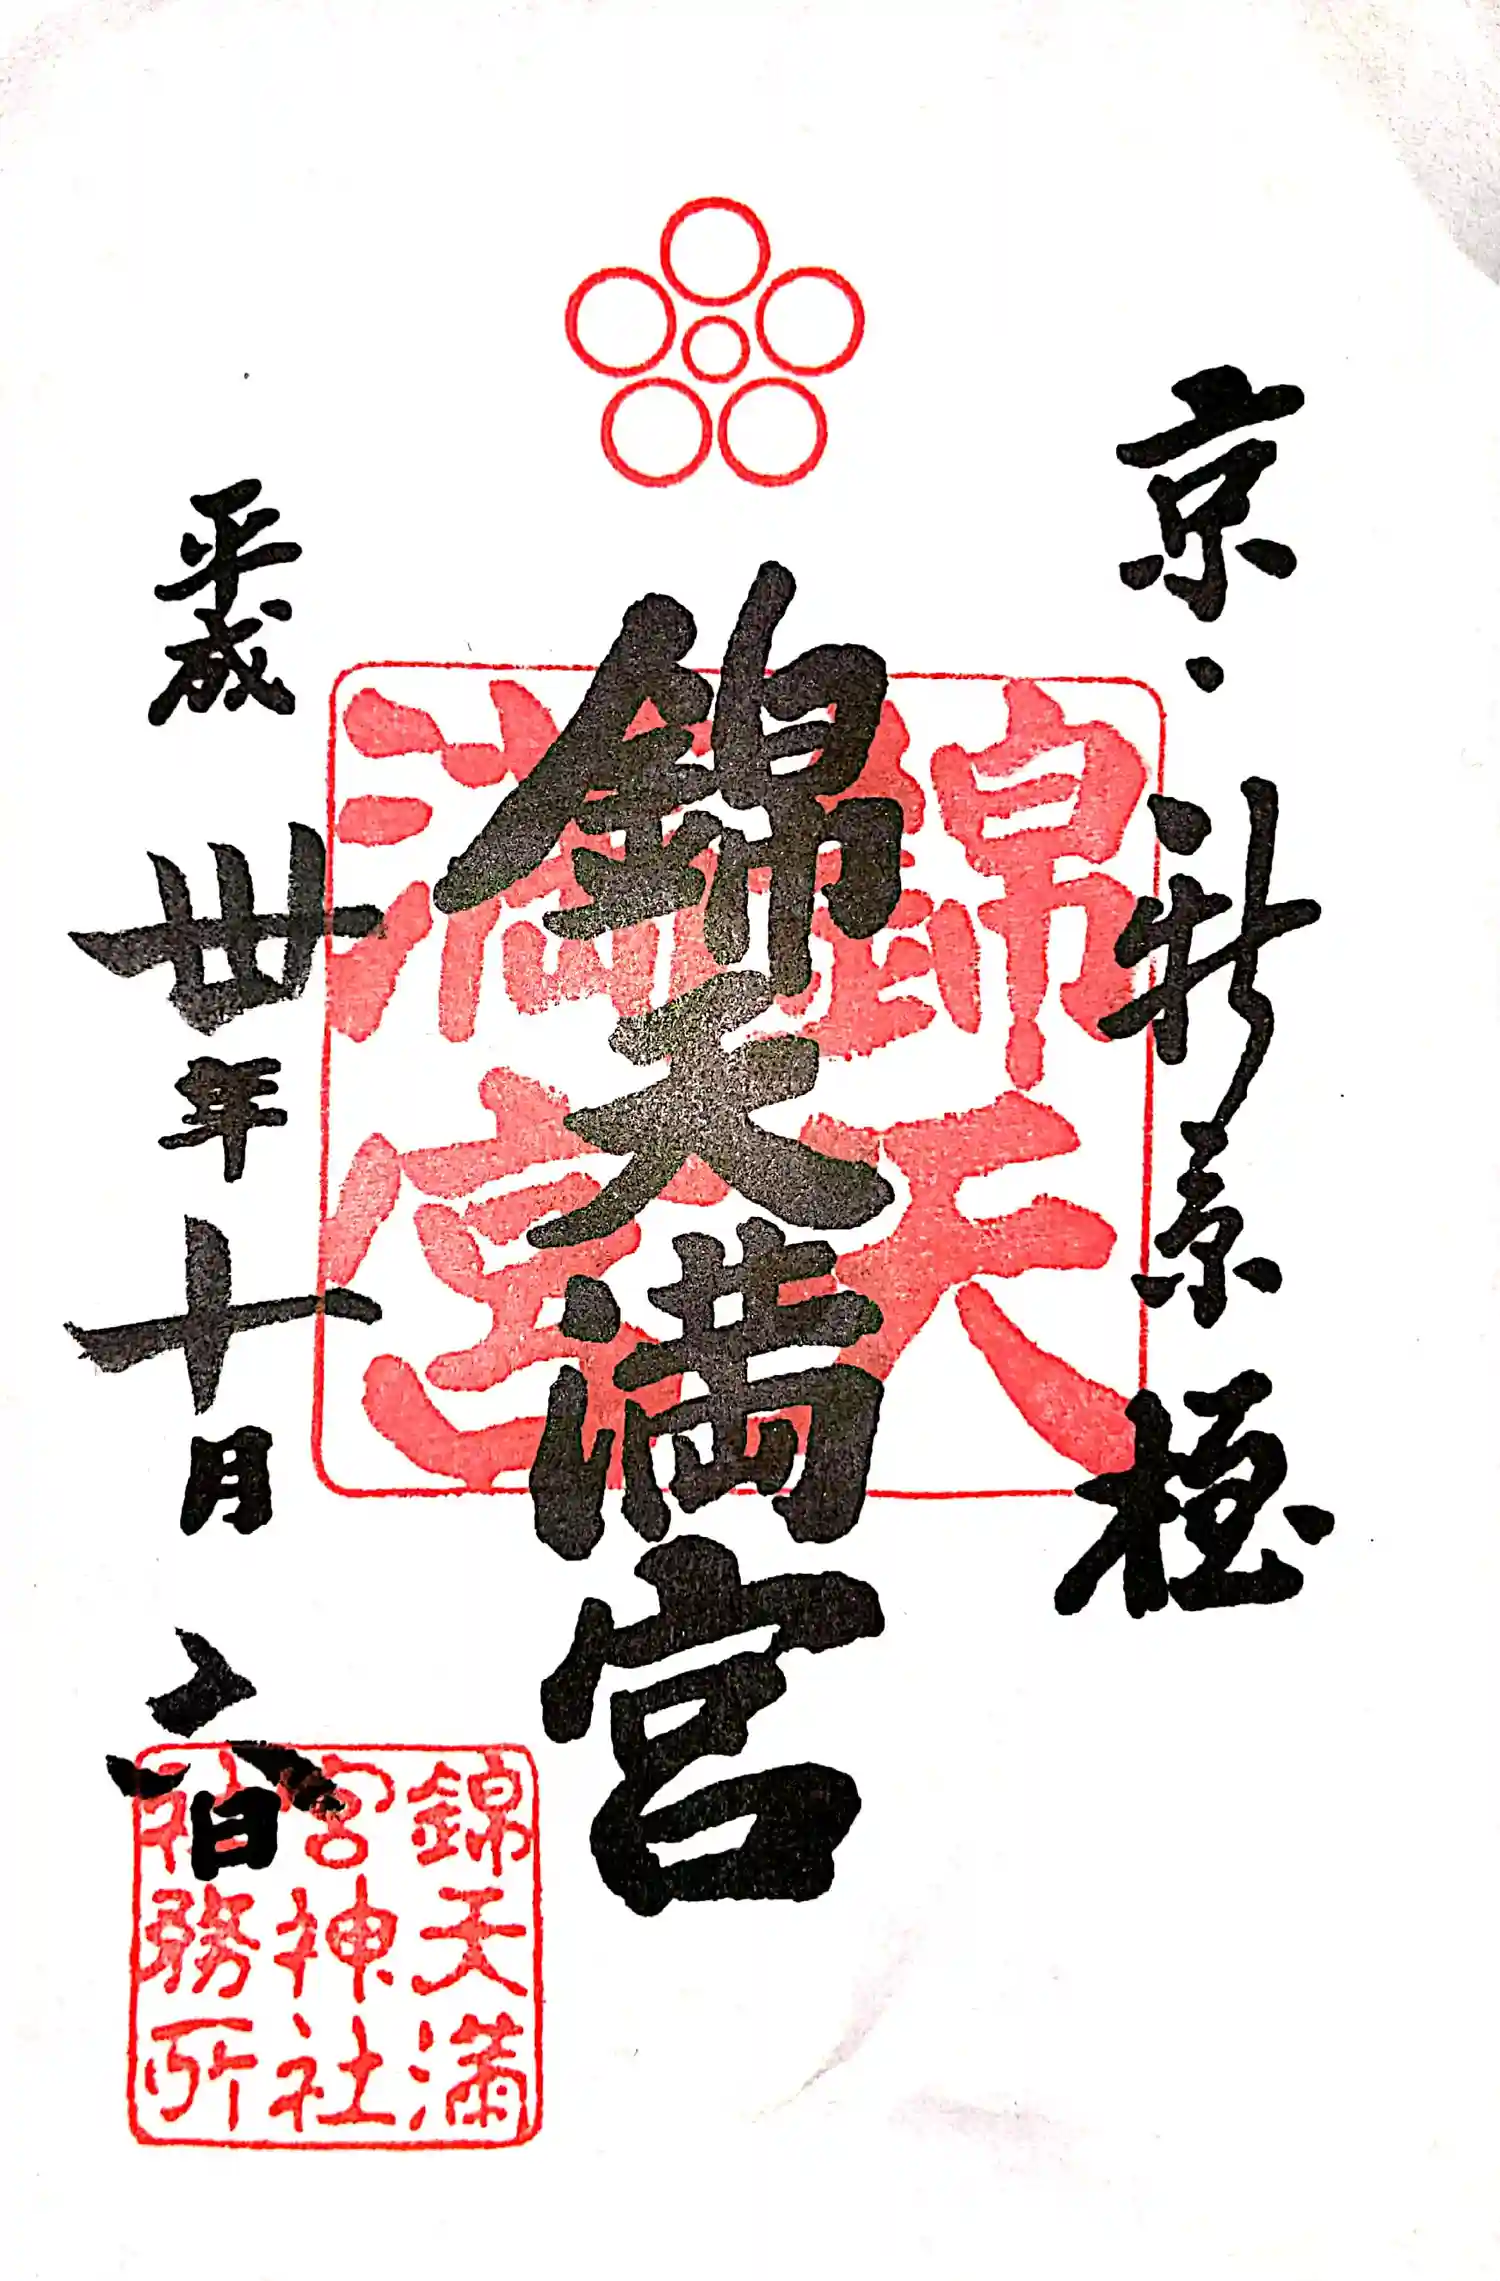 京・新京極
錦天満宮
平成卅年十月六日
錦天
満宮
錦天満
宮神社
社務所